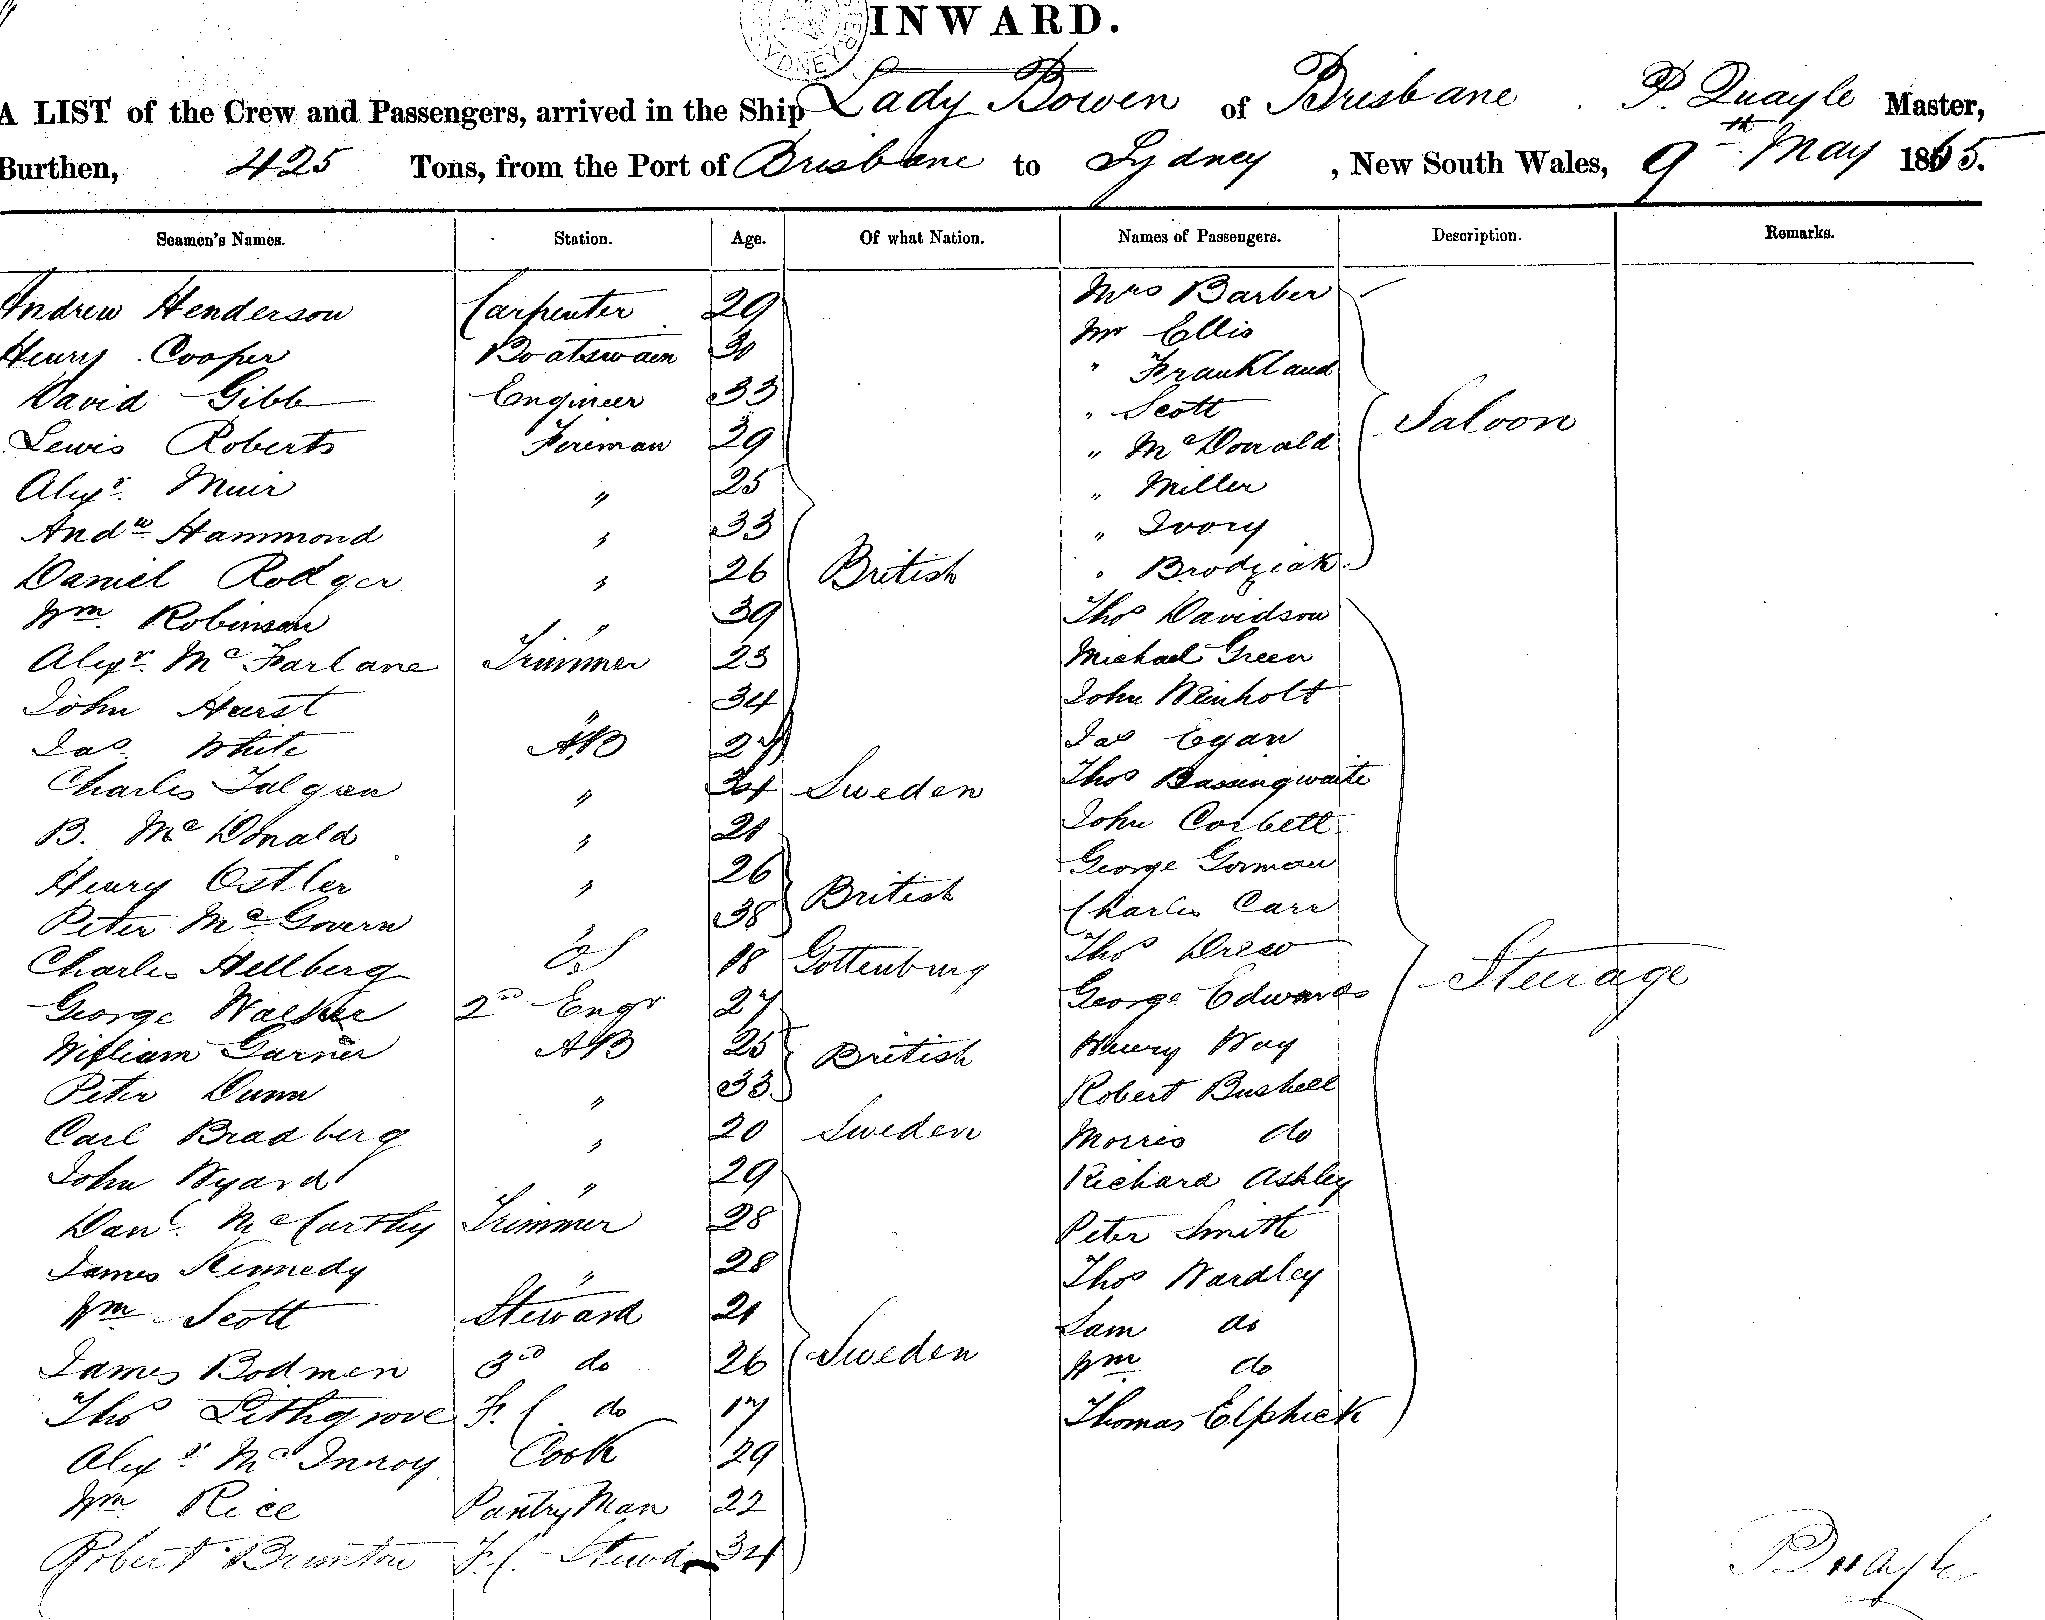 INWARD.
A LIST of the Crew and Passengers, arrived in the Ship Lady Bowen of Brisbane P. Quayle Master,
Burthen, 425 Tons, from the Port of Brisbane to Sydney, New South Wales, 9th May 1865.
Seamen's Names. Station. Age. Of what Nation. Names of Passengers. Description. Remarks.
Andrew Henderson Carpenter 29 Mrs Barber
Henry Cooper Boatswain 30 Mr Ellis
David Gibb Engineer 33 " Frankland
" Scott Saloon
Lewis Roberts Fireman 29 " McDonald
Alexr. Muir " 25 " Miller
Andw Hammond " 33 " Ivory
Daniel Rodger " 26 British " Brodziak
Wm Robinson " 39 Thos Davidson
Alexr. McFarlane Trimmer 23 Michael Green
John Hurst " 34 John Weinholt
Jas White AB 27 Jas Egan
Charles Falgren " 34 Sweden Thos Bassingwaite
B. McDonald " 21 John Corbett
Henry Ostler " 26 British George Gorman
Peter McGovern " 38 Charles Carr
Charles Hellberg OS 18 Gottenburg Thos Drew
George Walker 2nd Engr 27 George Edwards Steerage
William Garner AB 25 British Henry Way
Peter Dunn " 33 Robert Bushell
Carl Bradberg " 20 Sweden Morris do
John Wyard " 29 Richard Ashley
Danl. McCarthy Trimmer 28 Peter Smith
James Kennedy " 28 Thos Wardley
Wm Scott Steward 21 Sam do
James Bodmen 3rd do 26 Sweden Wm do
Thos Lithgrove F. C. do 17 Thomas Elphick
Alexr McInroy Cook 29
Wm Rice PantryMan 22
Robert Brunton F. C. Stewd 34
P Quayle